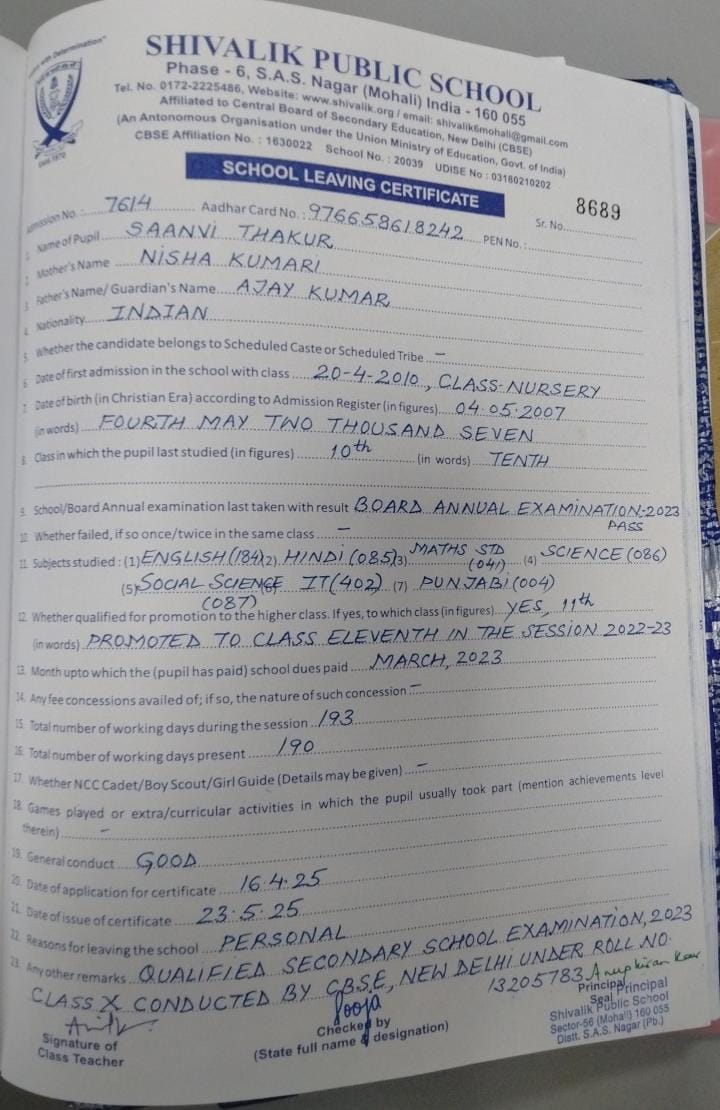 SHIVALIK PUBLIC SCHOOL
Phase - 6, S.A.S. Nagar (Mohali) India - 160 055
Tel. No. 0172-2225486, Website: www.shivalik.org / email: shivalik6mohali@gmail.com
Affiliated to Central Board of Secondary Education, New Delhi (CBSE)
(An Antonomous Organisation under the Union Ministry of Education, Govt. of India)
CBSE Affiliation No. : 1630022 School No. : 20039 UDISE No : 03180210202
SCHOOL LEAVING CERTIFICATE
Admission No.: 7614 Aadhar Card No.: 976658618242 PEN No.: Sr. No. 8689
1. Name of Pupil SAANVI THAKUR
2. Mother's Name NISHA KUMARI
3. Father's Name/ Guardian's Name AJAY KUMAR
4. Nationality INDIAN
5. Whether the candidate belongs to Scheduled Caste or Scheduled Tribe –
6. Date of first admission in the school with class 20-4-2010, CLASS-NURSERY
7. Date of birth (in Christian Era) according to Admission Register (in figures) 04.05.2007
(in words) FOURTH MAY TWO THOUSAND SEVEN
8. Class in which the pupil last studied (in figures) 10th (in words) TENTH
9. School/Board Annual examination last taken with result BOARD ANNUAL EXAMINATION-2023
PASS
10. Whether failed, if so once/twice in the same class –
11. Subjects studied : (1) ENGLISH (184) (2) HINDI (085) (3) MATHS STD (041) (4) SCIENCE (086)
(5) SOCIAL SCIENCE (087) IT (402) (7) PUNJABI (004)
12. Whether qualified for promotion to the higher class. If yes, to which class (in figures) YES, 11th
(in words) PROMOTED TO CLASS ELEVENTH IN THE SESSION 2022-23
13. Month upto which the (pupil has paid) school dues paid MARCH, 2023
14. Any fee concessions availed of; if so, the nature of such concession –
15. Total number of working days during the session 193
16. Total number of working days present 190
17. Whether NCC Cadet/Boy Scout/Girl Guide (Details may be given) –
18. Games played or extra/curricular activities in which the pupil usually took part (mention achievements level
therein) –
19. General conduct GOOD
20. Date of application for certificate 16.4.25
21. Date of issue of certificate 23.5.25
22. Reasons for leaving the school PERSONAL
23. Any other remarks QUALIFIED SECONDARY SCHOOL EXAMINATION, 2023
CLASS X CONDUCTED BY CBSE, NEW DELHI UNDER ROLL NO.
13205783 Anupkiran Kaur
Signature of
Class Teacher
Pooja
Checked by
(State full name & designation)
Principal
Seal Principal
Shivalik Public School
Sector-56 (Mohali) 160 055
Distt. S.A.S. Nagar (Pb.)